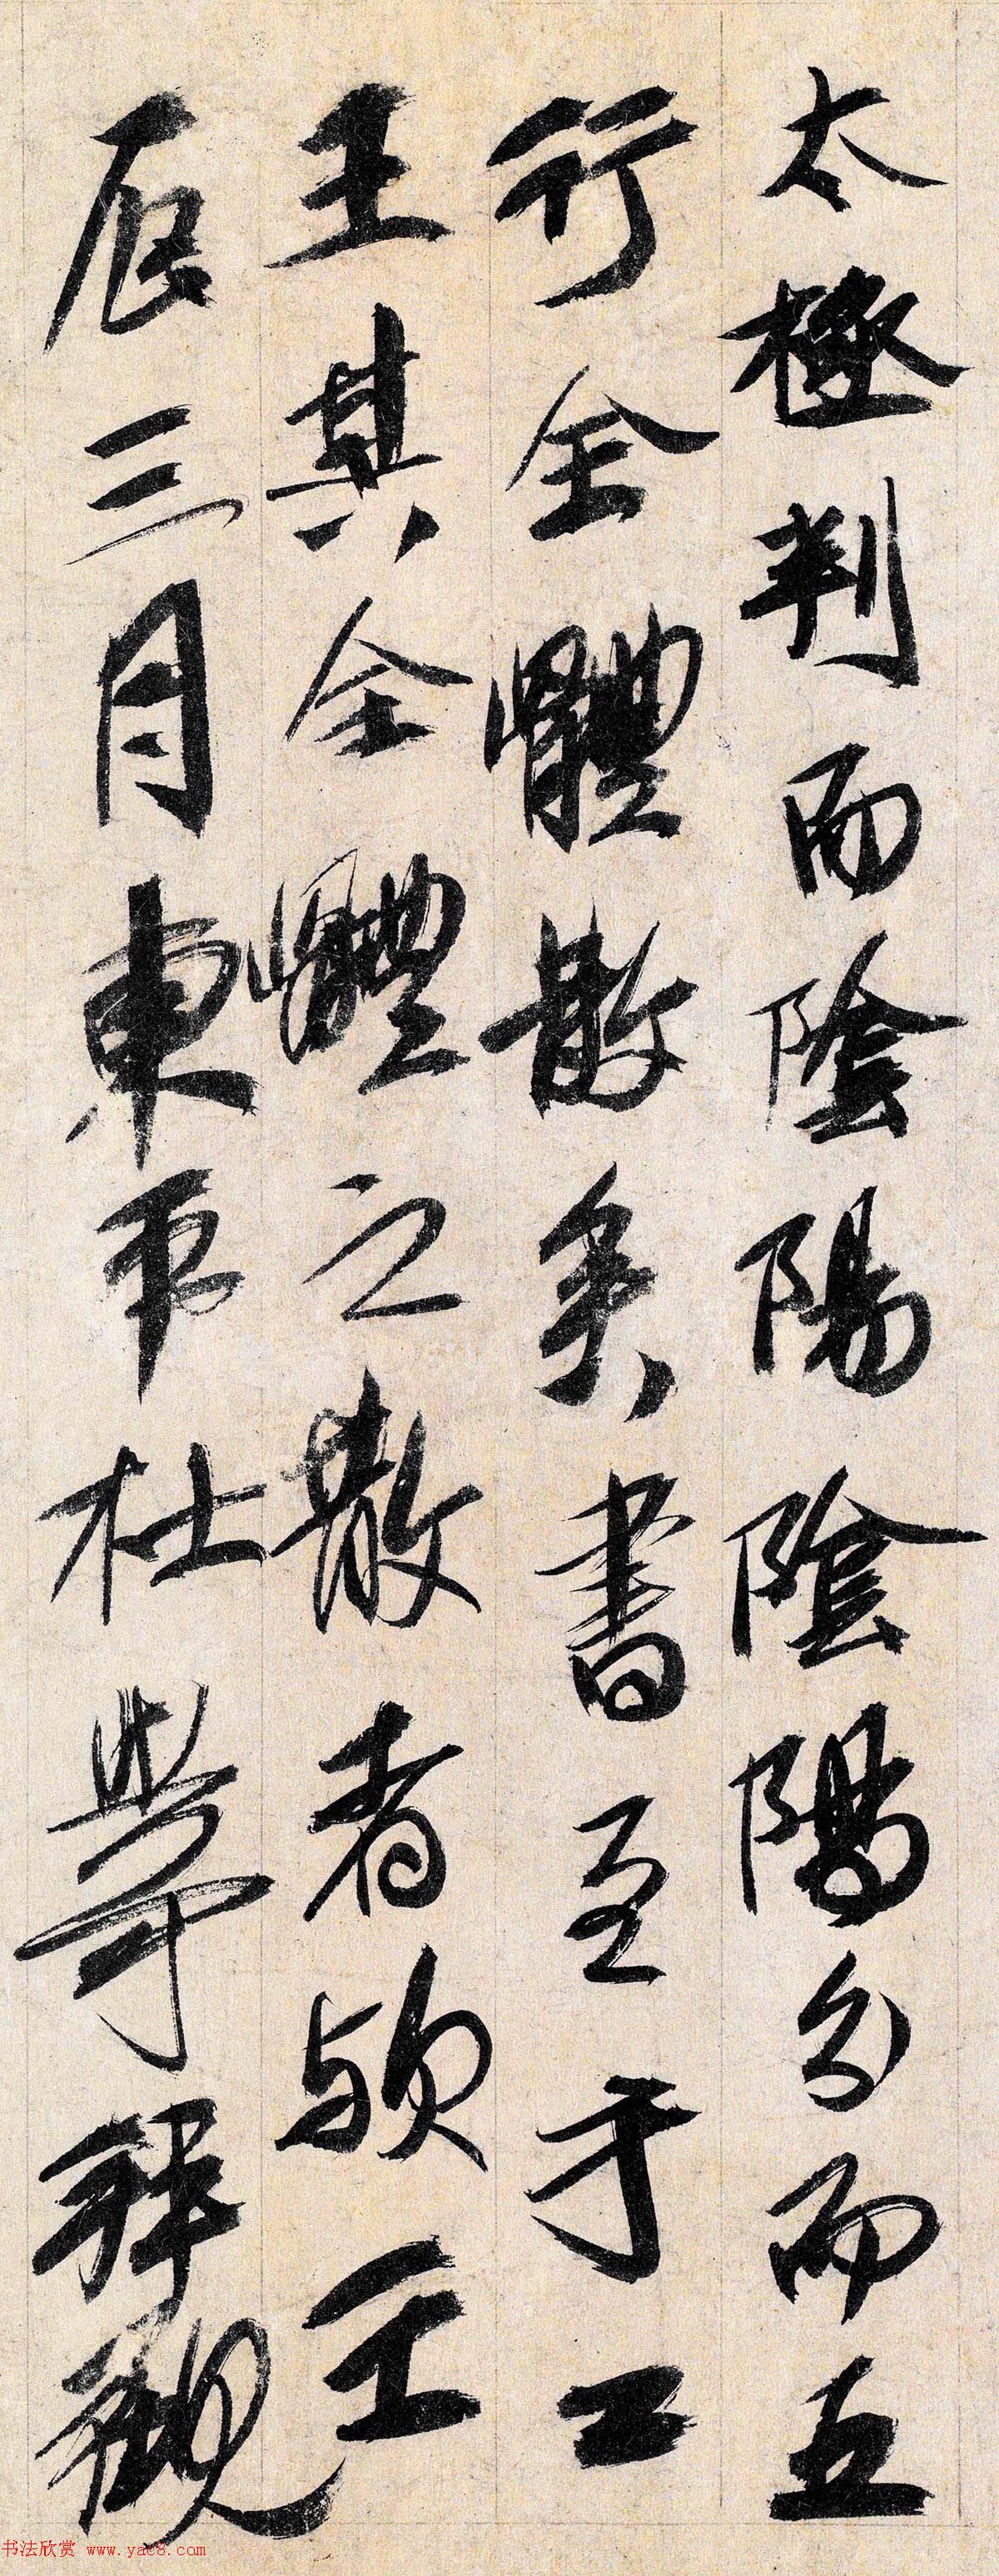 太極判而陰陽陰陽分而五
行全體散矣書至于二
王其全體之散者歟壬
辰三月東平杜㟴拜觀
书法欣赏 www.yac8.com